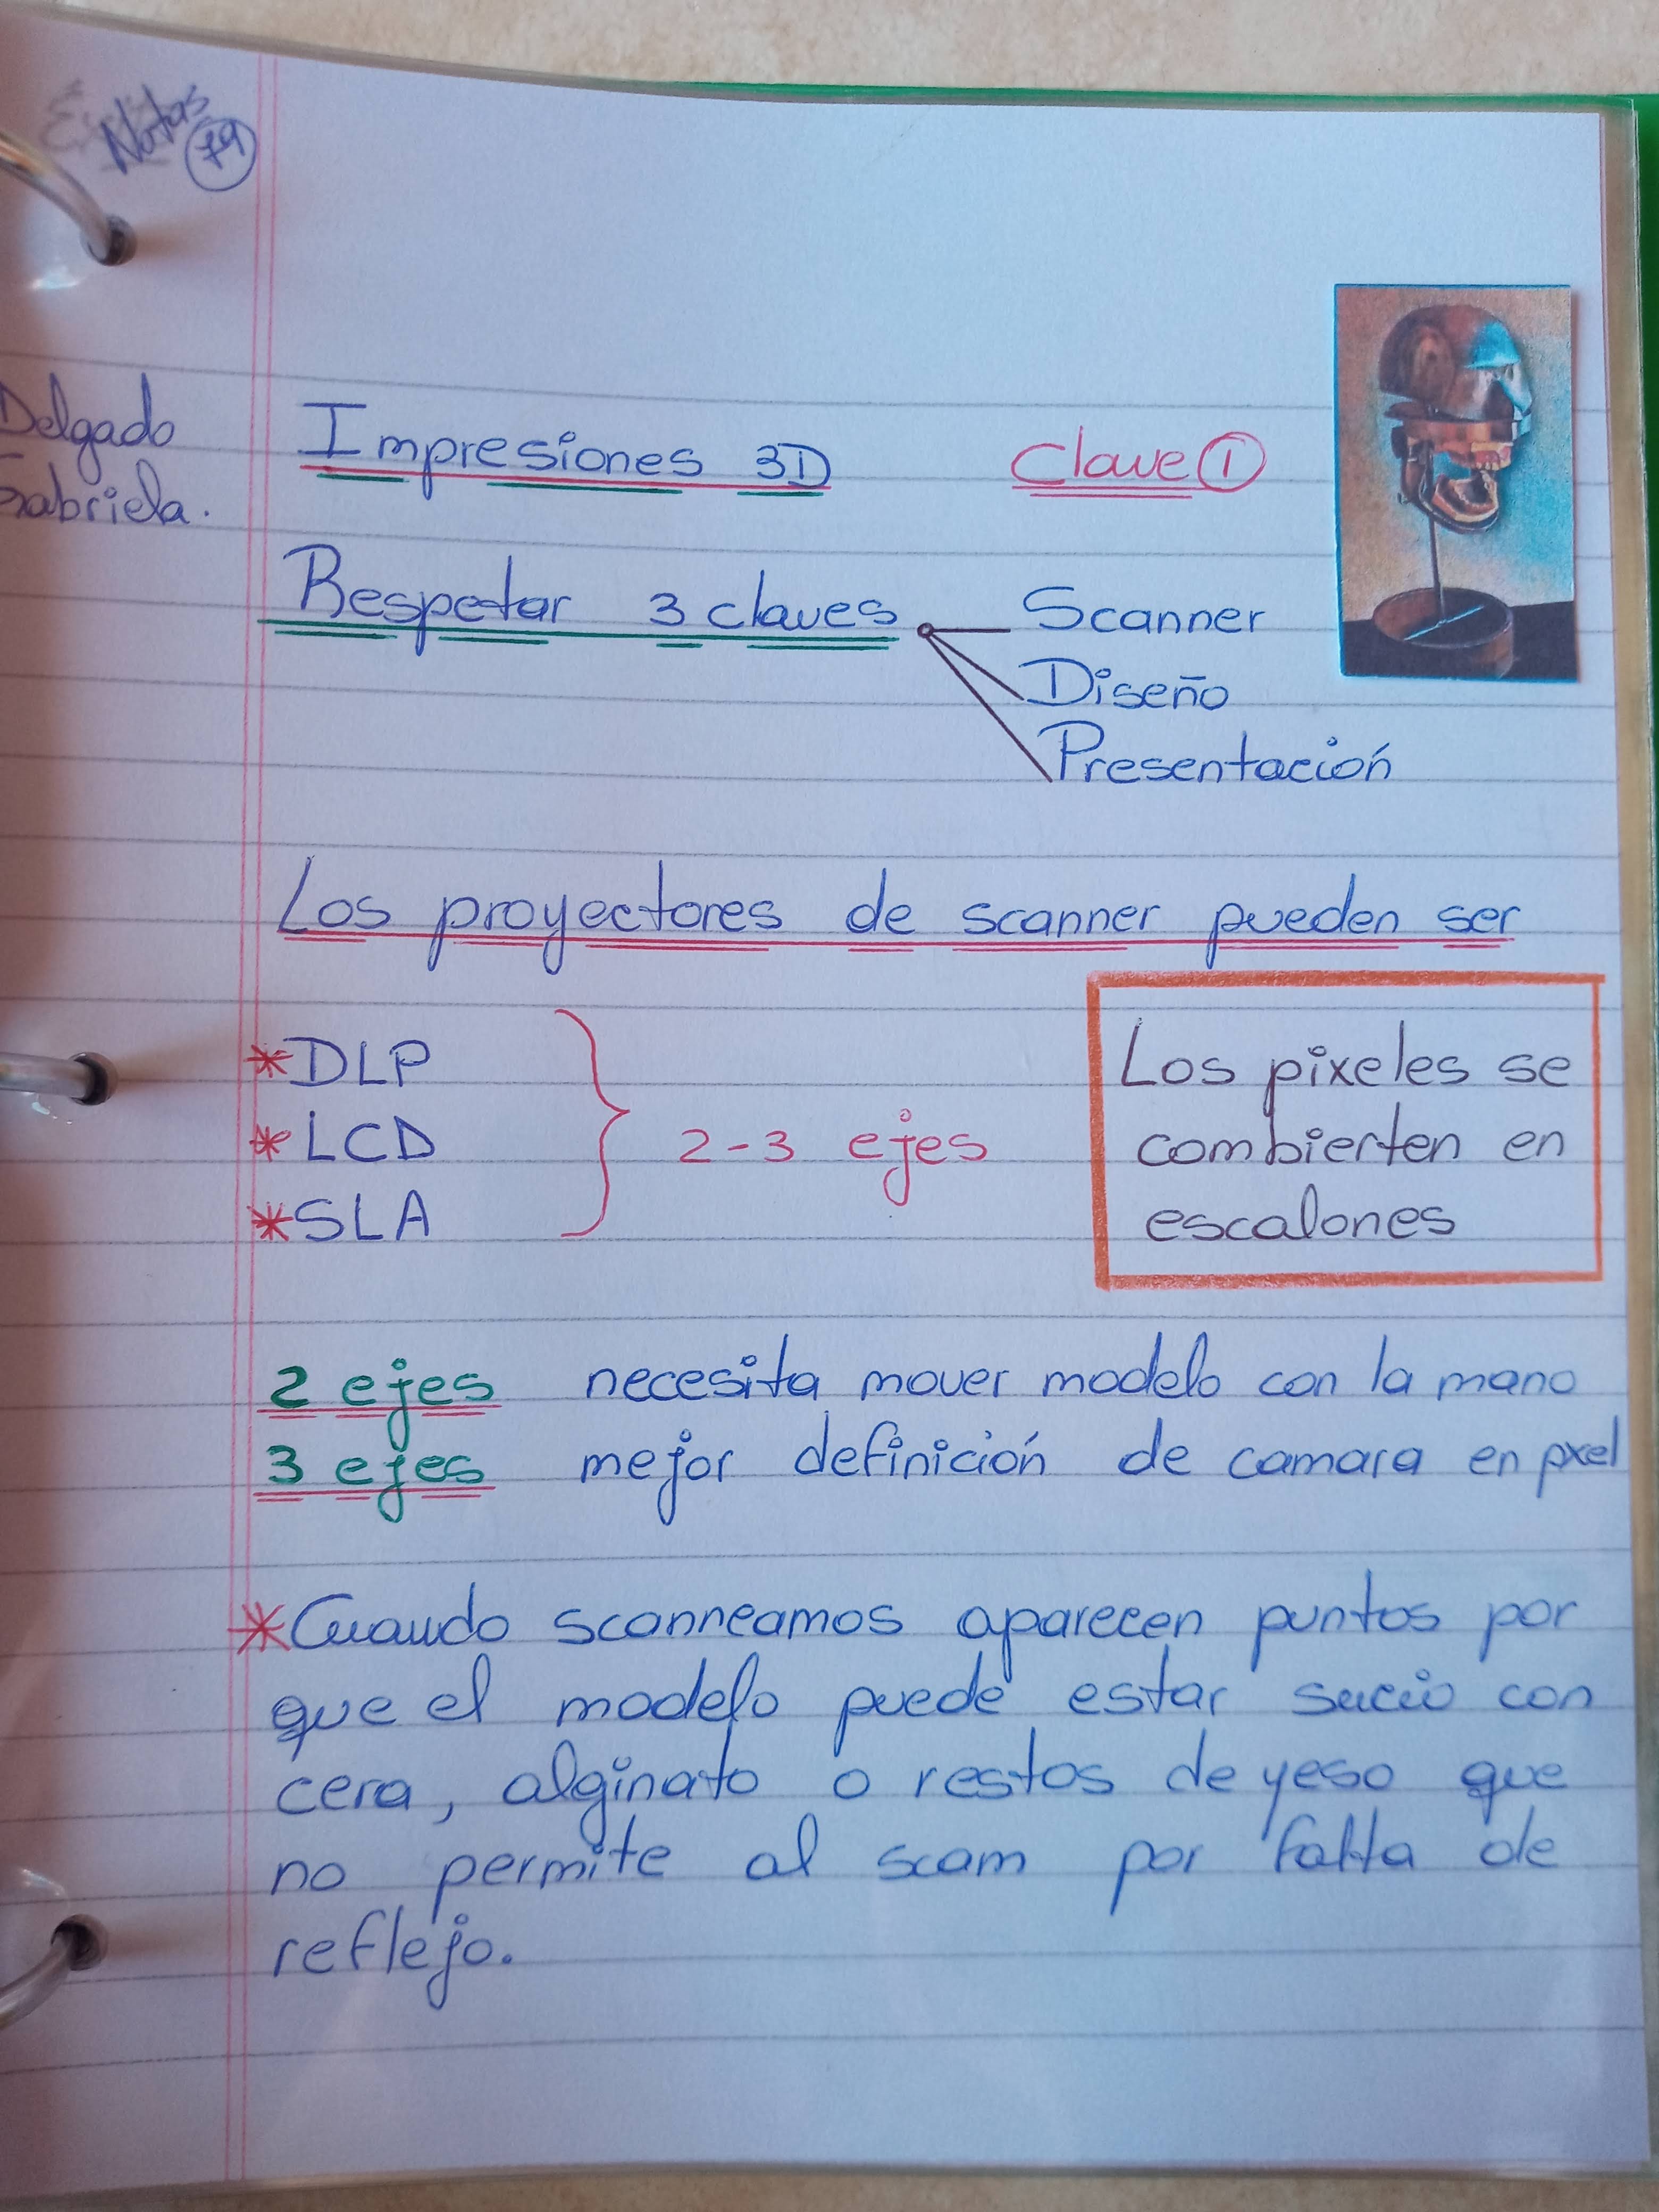 Notas
79
Delgado
Gabriela.
Impresiones 3D Clave 1
Respetar 3 claves
Scanner
Diseño
Presentación
Los proyectores de scanner pueden ser
*DLP
*LCD
*SLA
2-3 ejes
Los pixeles se
combierten en
escalones
2 ejes necesita mover modelo con la mano
3 ejes mejor definición de camara en pxel
*Cuando scanneamos aparecen puntos por
que el modelo puede estar sucio con
cera, alginato o restos de yeso que
no permite al scam por falta de
reflejo.